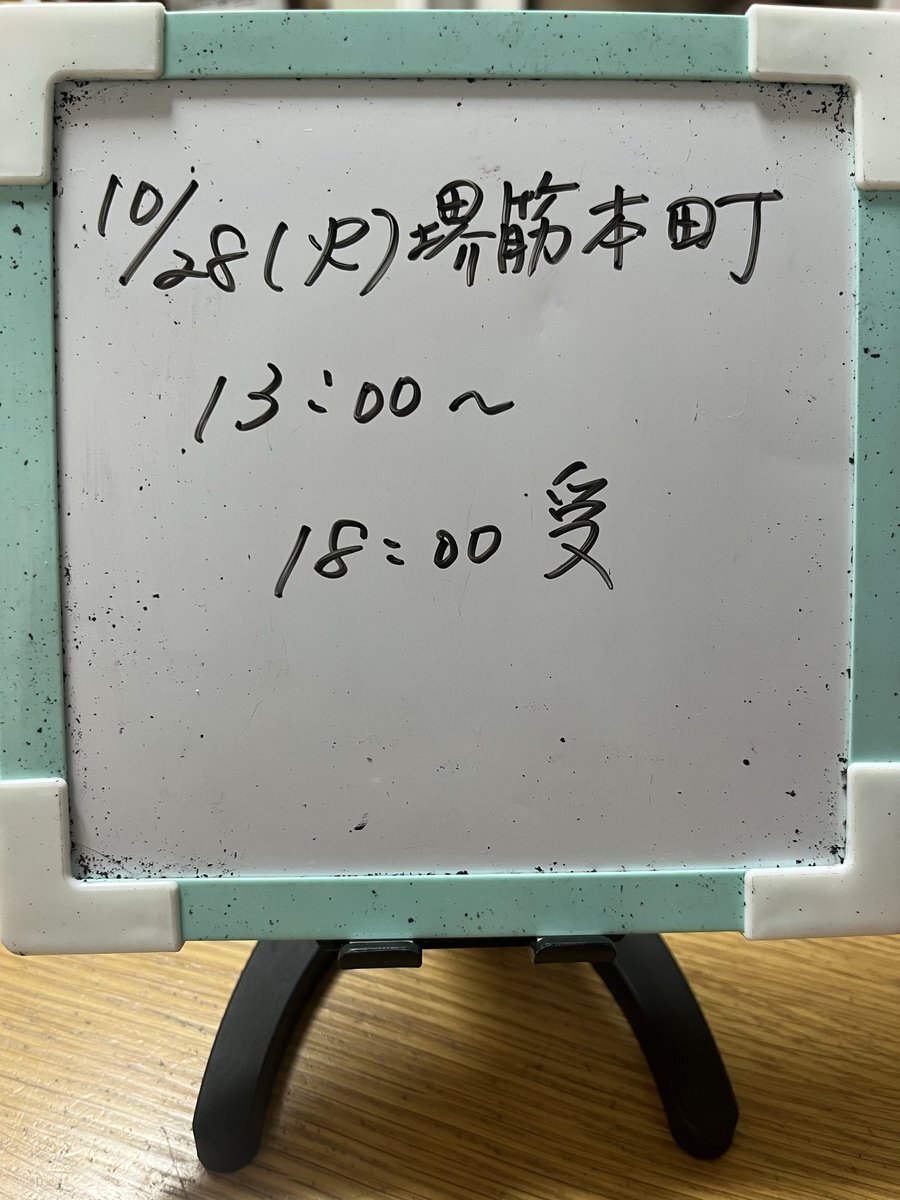 10/28(火)堺筋本町
13:00〜
18:00 受